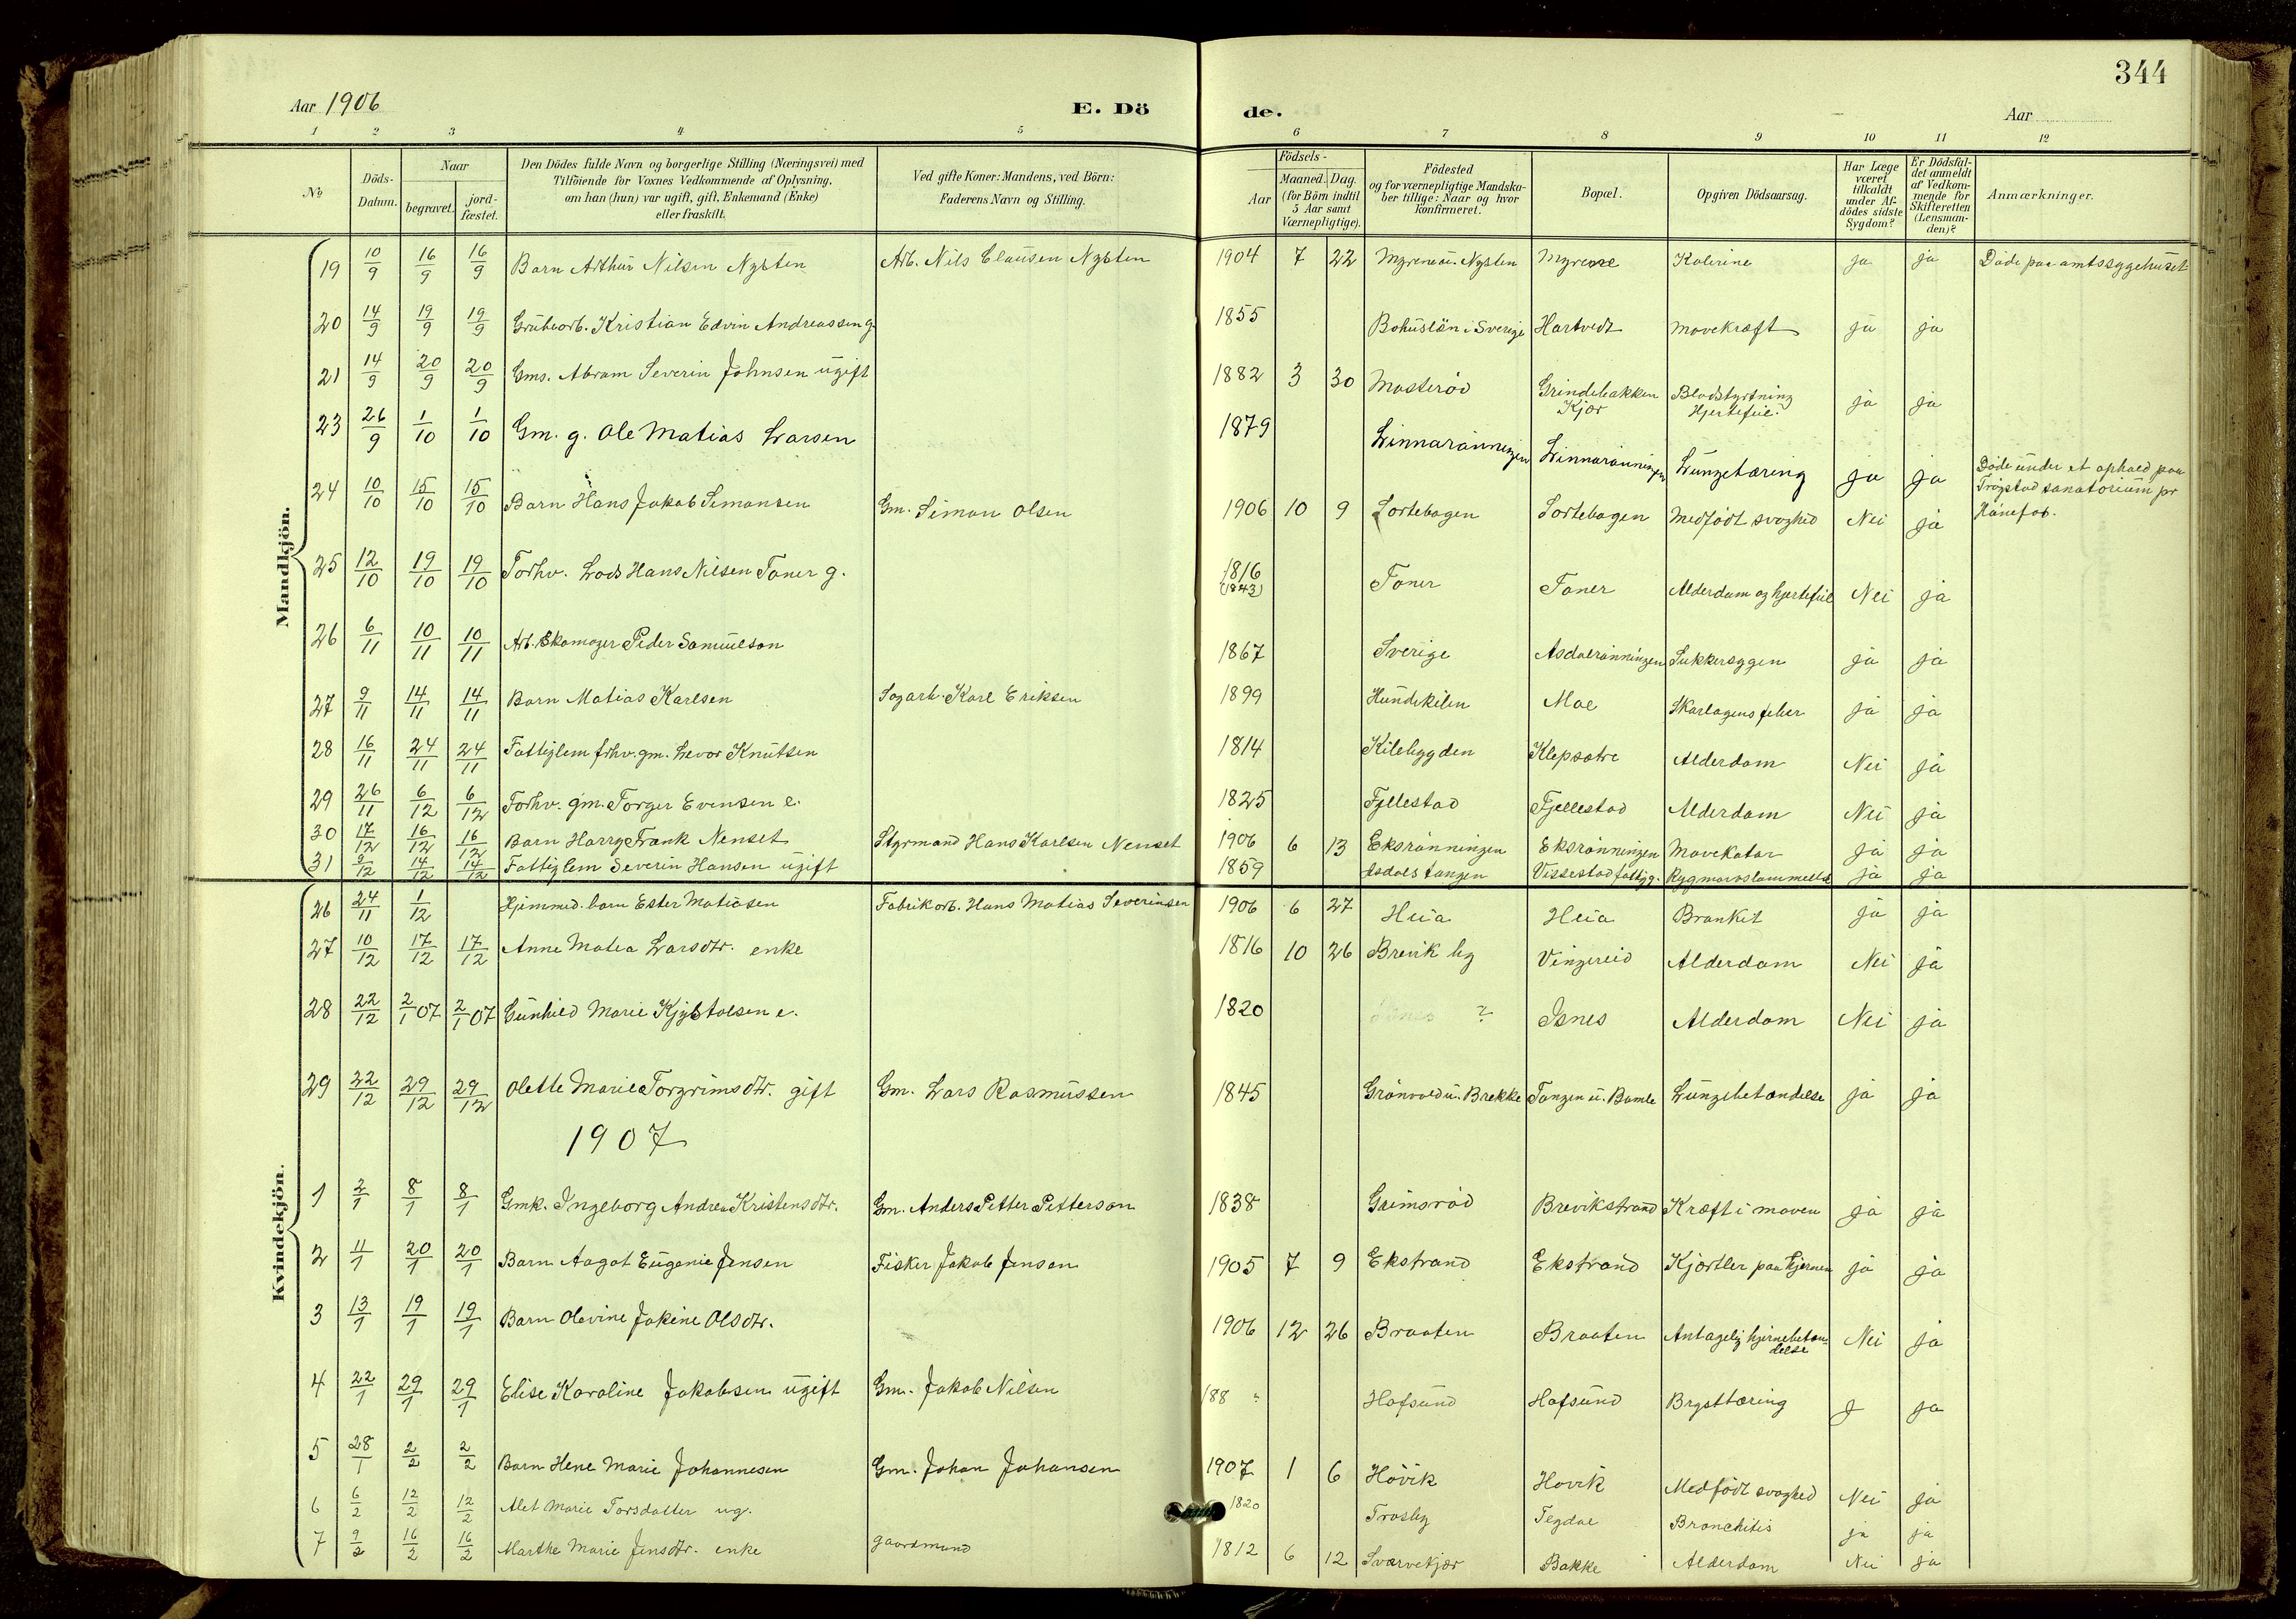 344
Aar 1906
E. Dö
de.
Aar
1 2 3 4 5 6 7 8 9 10 11 12
No
Döds-Datum.
Naar
begravet.
jord-fæstet.
Den Dödes fulde Navn og borgerlige Stilling (Næringsvei) med
Tilföiende for Voxnes Vedkommende af Oplysning,
om han (hun) var ugift, gift, Enkemand (Enke)
eller fraskilt.
Ved gifte Koner: Mandens, ved Börn:
Faderens Navn og Stilling.
Födsels-
Aar
Maaned. Dag.
(for Börn indtil
5 Aar samt
Værnepligtige).
Födested
og for værnepligtige Mandska-
ber tillige: Naar og hvor
konfirmeret.
Bopæl.
Opgiven Dödsaarsag.
Har Læge
været
tilkaldt
under Af-
dödes sidste
Sygdom?
Er Dödsfal-
det anmeldt
af Vedkom-
mende for
Skifteretten
(Lensman-
den)?
Anmærkninger.
Mandkjön.
19 10/9 16/9 16/9 Barn Arthur Nilsen Nysten Arb. Nils Clausen Nysten 1904 7 22 Myrene u. Nysten Myrene Kolerine ja ja Döde paa amtssygehuset
20 14/9 19/9 19/9 Grubearb. Kristian Edvin Andreassen g. 1855 Bohuslän i Sverige Hartvedt Mavekræft ja ja
21 14/9 20/9 20/9 Gms. Abram Severin Johnsen ugift 1882 3 30 Masteröd Grindebakken Kjær Blodstyrtning Hjertefeil ja ja
23 26/9 1/10 1/10 Gm. g. Ole Matias Larsen 1879 Linnarønningen Linnarønningen Lungetæring ja ja Döde under et ophold paa Trögstad sanatorium pr Hönefos.
24 10/10 15/10 15/10 Barn Hans Jakob Simonsen Gm. Simon Olsen 1906 10 9 Sortebogen Sortebogen Medfödt svaghed Nei ja
25 12/10 19/10 19/10 Forhv. Lods Hans Nilsen Toner g. 1816 (1843) Toner Toner Alderdom og hjertefeil Nei ja
26 6/11 10/11 10/11 Arb. Skomager Peder Samuelson 1867 Sverige Asdalrønningen Sukkersygen ja ja
27 9/11 14/11 14/11 Barn Matias Karlsen Sagarb. Karl Eriksen 1899 Hundekilen Moe Skarlagensfeber ja ja
28 16/11 24/11 24/11 Fattiglem frhv. gm. Levor Knutsen 1814 Kilebygden Klepsætre Alderdom Nei ja
29 26/11 6/12 6/12 Forhv. gm. Torger Evensen e. 1825 Fjellestad Fjellestad Alderdom Nei ja
30 17/12 16/12 16/12 Barn Harry Frank Nenset Styrmand Hans Karlsen Nenset 1906 6 13 Eksrønningen Eksrønningen Mavekatar ja ja
31 9/12 14/12 14/12 Fattiglem Severin Hansen ugift 1859 Asdalstangen Vissestad fattigg. ja ja
Kvindekjön.
26 24/11 1/12 Hjemmed. barn Ester Matiasen Fabrikarb. Hans Matias Severinsen 1906 6 27 Heia Heia Bronkit ja ja
27 10/12 17/12 17/12 Anne Matea Larsdtr. enke 1816 10 26 Brevik by Vingereid Alderdom Nei ja
28 22/12 2/1 07 2/1 07 Gunhild Marie Kjøstolsen e. 1820 ? Isnes Alderdom Nei ja
29 22/12 29/12 29/12 Olette Marie Torgrimsdtr. gift Gm. Lars Rasmussen 1845 Grönvold u. Brekke Tangen u. Bamle Lungebetændelse ja ja
1907
1 2/1 8/1 8/1 Gmk. Ingeborg Andrea Kristensdtr. Gm. Anders Petter Petterson 1838 Grimsröd Brevikstrand Kræft i maven ja ja
2 11/1 20/1 20/1 Barn Aagot Eugenie Jensen Fisker Jakob Jensen 1905 7 9 Ekstrand Ekstrand Kjertler paa hjernen ja ja
3 13/1 19/1 19/1 Barn Olevine Jakine Olsdtr. 1906 12 26 Braaten Braaten Antagelig hjernebetændelse Nei ja
4 22/1 29/1 29/1 Elise Karoline Jakobsen ugift Gm. Jakob Nilsen 188 Hafsund Hafsund Brysttæring J ja
5 28/1 2/2 2/2 Barn Hene Marie Johannesen Gm. Johan Johansen 1907 1 6 Hövik Hovik Medfödt svaghed Nei ja
6 6/2 12/2 12/2 Alet Marie Torsdatter ug. 1820 Trosby Tegdal Bronchitis ja ja
7 9/2 16/2 16/2 Marthe Marie Jensdtr. enke gaardmand 1812 6 12 Svarvekjær Bakke Alderdom Nei ja